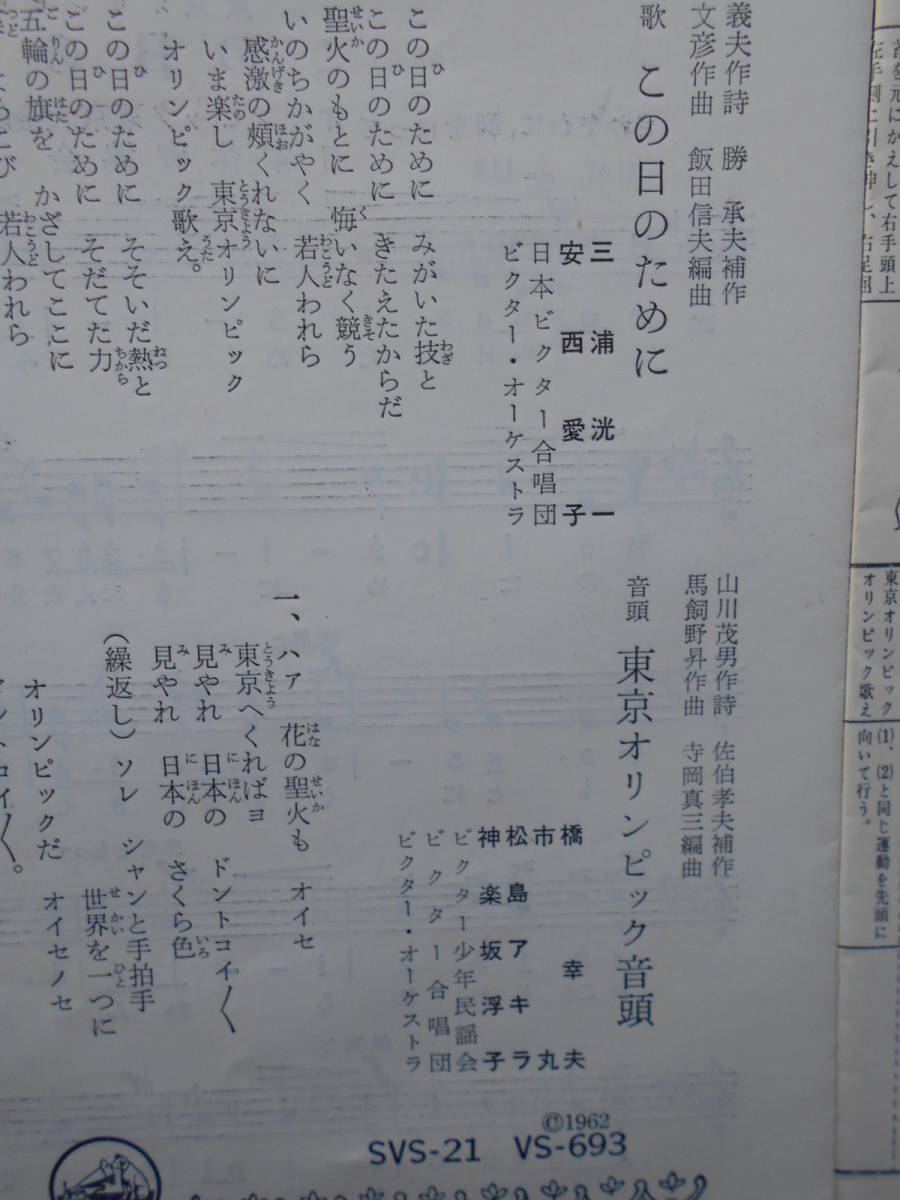 首を元にかえして右手頭上
東京オリンピック
オリンピック歌え
(1)、(2)と同じ運動を先頭に
向いて行う。
義夫作詩 勝承夫補作
文彦作曲 飯田信夫編曲
歌 この日のために
三浦洸一
安西愛子
日本ビクター合唱団
ビクター・オーケストラ
この日のために みがいた技と
この日のために きたえたからだ
聖火のもとに 悔いなく競う
いのちかがやく 若人われら
感激の頰くれないに
いま楽し 東京オリンピック
オリンピック歌え。
この日のために そそいだ熱と
この日のために そだてた力
五輪の旗を かざしてここに
よろこび 若人われら
山川茂男作詩 佐伯孝夫補作
馬飼野昇作曲 寺岡真三編曲
音頭 東京オリンピック音頭
橋幸夫
市丸
松島アキラ
神楽坂浮子
ビクター少年民謡会
ビクター合唱団
ビクター・オーケストラ
一、ハァ 花の聖火も オイセ
東京へくればョ
見やれ 日本の ドントコイ〱
見やれ 日本の さくら色
(繰返し)ソレ シャンと手拍手
世界を一つに
オリンピックだ オイセノセ
ドントコイ〱。
©1962
SVS-21 VS-693